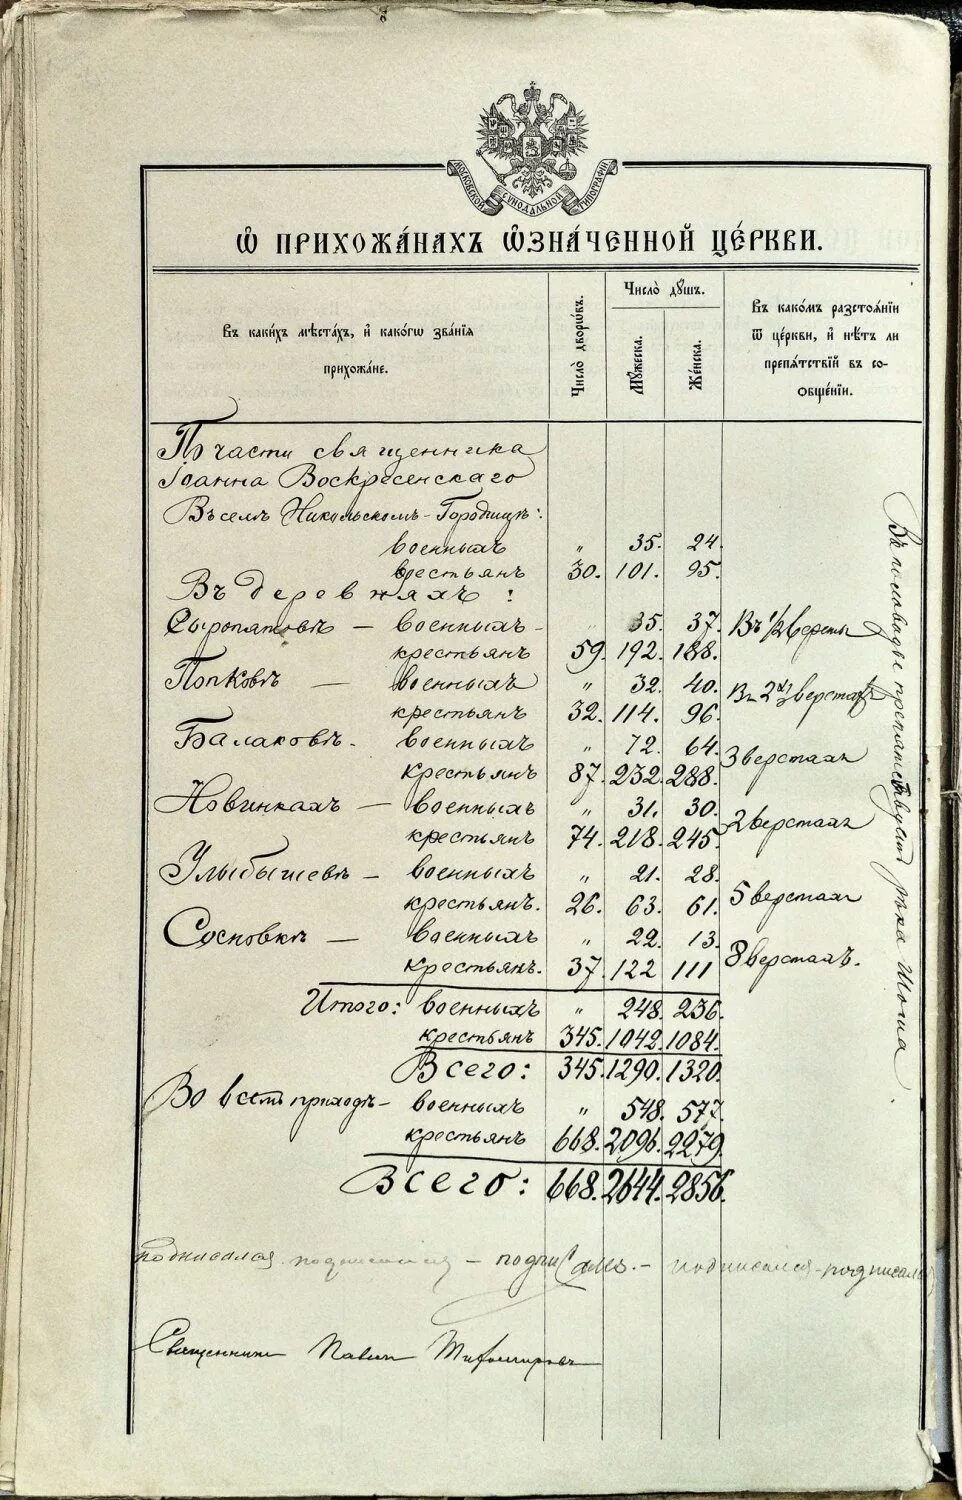 МОСКОВСКОЙ СѴНОДАЛЬНОЙ ТИПОГРАФІИ
Ѽ ПРИХОЖА́НАХЪ ѼЗНА́ЧЕННОЙ ЦЕ́РКВИ.
Въ каки́хъ мѣста́хъ, и҆ како́гѡ зва́нїѧ
прихожа́не.
Число̀ дворѡ́въ.
Число̀ дꙋ́шъ.
Мꙋ́жеска.
Же́нска.
Въ како́мъ разстоѧ́нїи
ѿ це́ркви, и҆ нѣ́тъ ли
препѧ́тствїй въ со-
ѻбще́нїи.
По части священника
Іоанна Воскресенскаго
Въ селѣ Никольскомъ-Городищѣ:
военныхъ „ 35. 24.
крестьянъ 30. 101. 95.
Въ деревняхъ:
Сыропятовѣ — военныхъ „ 35. 37. Въ 1/2 версты
крестьянъ 59. 192. 188.
Попковѣ — военныхъ „ 32. 40. Въ 2 1/2 верстахъ
крестьянъ 32. 114. 96.
Балаковѣ. военныхъ „ 72. 64. 3 верстахъ
крестьянъ 87. 232. 288.
Новинкахъ — военныхъ „ 31. 30. 2 верстахъ
крестьянъ 74. 218. 245.
Улыбышевѣ — военныхъ „ 21. 28. 5 верстахъ
крестьянъ. 26. 63. 61.
Сосновкѣ — военныхъ „ 22. 13. 8 верстахъ.
крестьянъ. 37. 122 111
Итого: военныхъ „ 248. 236.
крестьянъ 345. 1042. 1084.
Всего: 345. 1290. 1320.
Во всемъ приходѣ — военныхъ „ 548. 577.
крестьянъ 668. 2096. 2279.
Всего: 668. 2644. 2856.
Въ половодье препятствуетъ рѣка Шоша
подписался подписался — подписалъ. — подписался — подписалъ
Священникъ Павелъ Тихомировъ